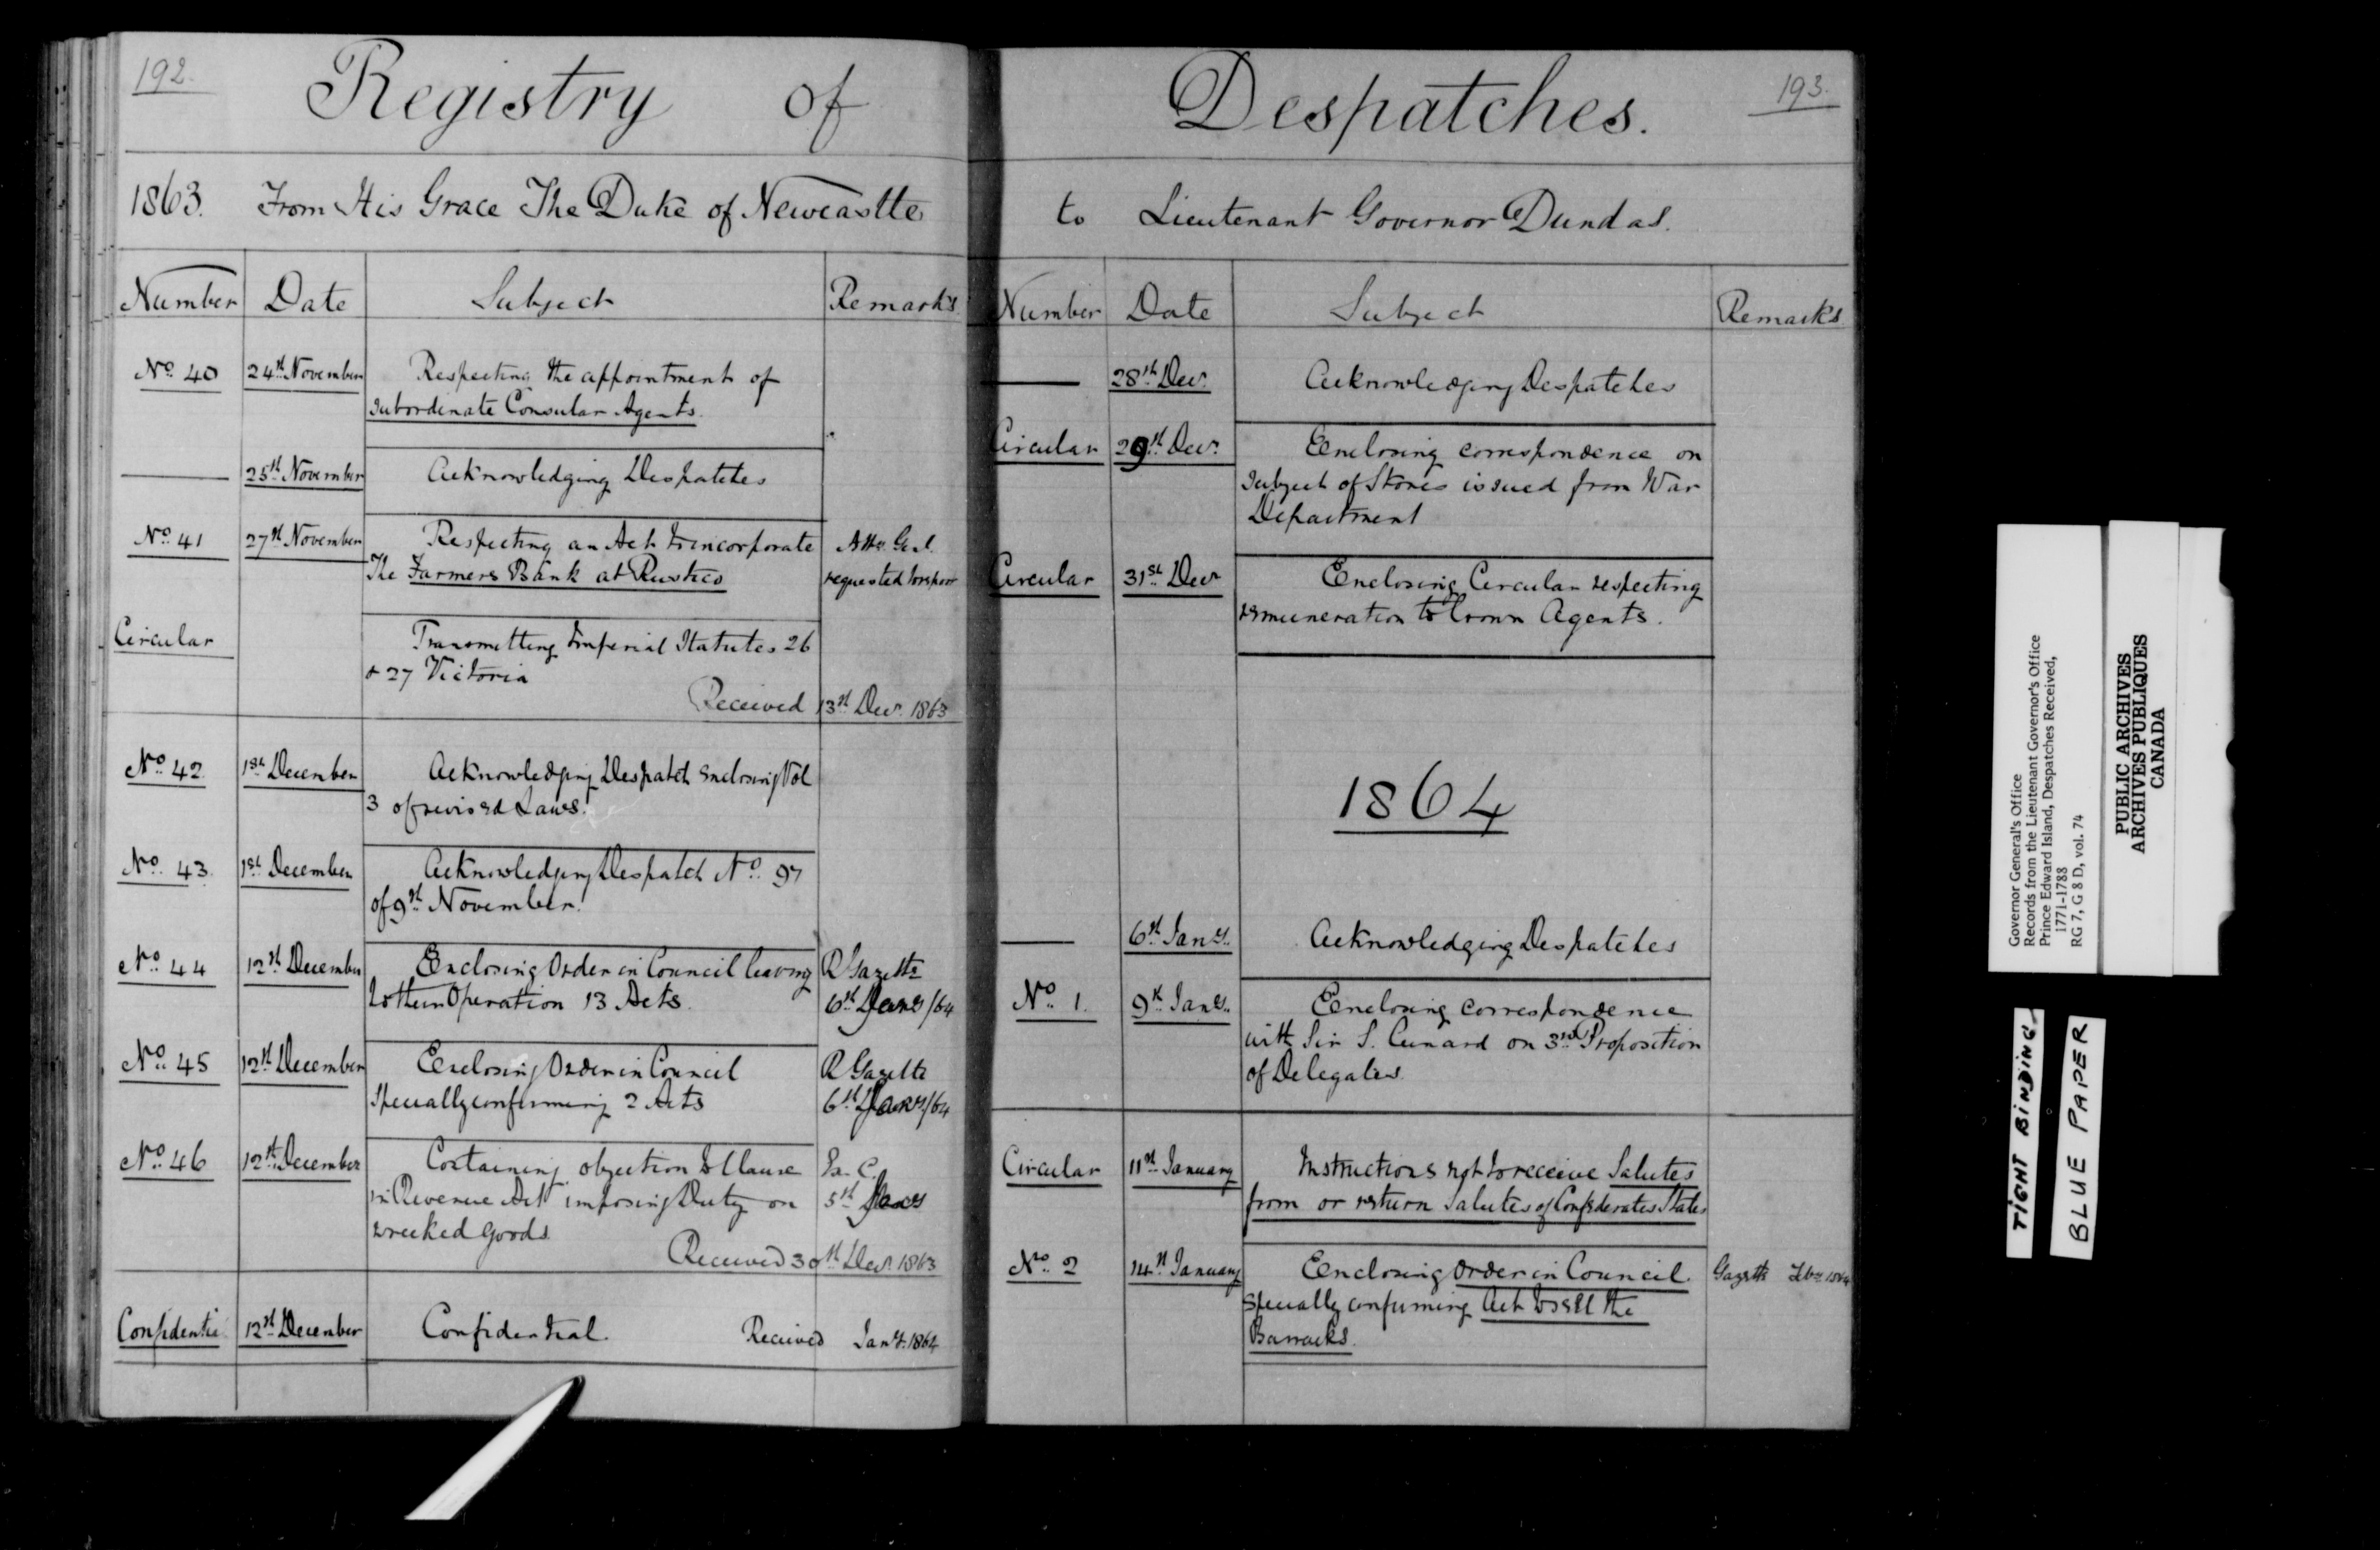 192.
Registry of
1863. From His Grace The Duke of Newcastle
Number Date Subject Remarks
No. 40 24th November Respecting the appointment of
subordinate Consular Agents.
25th November Acknowledging Despatches
No. 41 27th November Respecting an Act to incorporate Atty. Genl.
The Farmers Bank at Rustico requested to report
Circular Transmitting Imperial Statutes 26
& 27 Victoria
Received 13th Decr. 1863
No. 42. 1st December Acknowledging Despatch enclosing Vol
3 of revised Laws.
No. 43. 1st December Acknowledging Despatch No. 97
of 9th November.
No. 44 12th December Enclosing Order in Council leaving R Gazette
to their Operation 13 Acts. 6th Jany/64
No. 45 12th December Enclosing Order in Council R Gazette
specially confirming 2 Acts 6th Jany/64
No. 46 12th December Containing objection to Clause In C.
in Revenue Act imposing Duty on 5th Jany
wrecked goods
Received 30th Decr. 1863
Confidential 12th December Confidential. Received Jany. 1864
193.
Despatches.
to Lieutenant Governor Dundas.
Number Date Subject Remarks
28th Decr. Acknowledging Despatches
Circular 29th Decr. Enclosing correspondence on
subject of Stores issued from War
Department
Circular 31st Decr Enclosing Circular respecting
remuneration to Crown Agents.
1864
6th Jany. Acknowledging Despatches
No. 1. 9th Jany. Enclosing correspondence
with Sir S. Cunard on 3rd Proposition
of Delegates.
Circular 11th January Instructions not to receive Salutes
from or return Salutes of Confederates States
No. 2 14th January Enclosing Order in Council. Gazette Feby 1864
specially confirming Act to sell the
Barracks.
Governor General's Office
Records from the Lieutenant Governor's Office
Prince Edward Island, Despatches Received,
1771-1788
RG 7, G 8 D, vol. 74
PUBLIC ARCHIVES
ARCHIVES PUBLIQUES
CANADA
TIGHT BINDING
BLUE PAPER